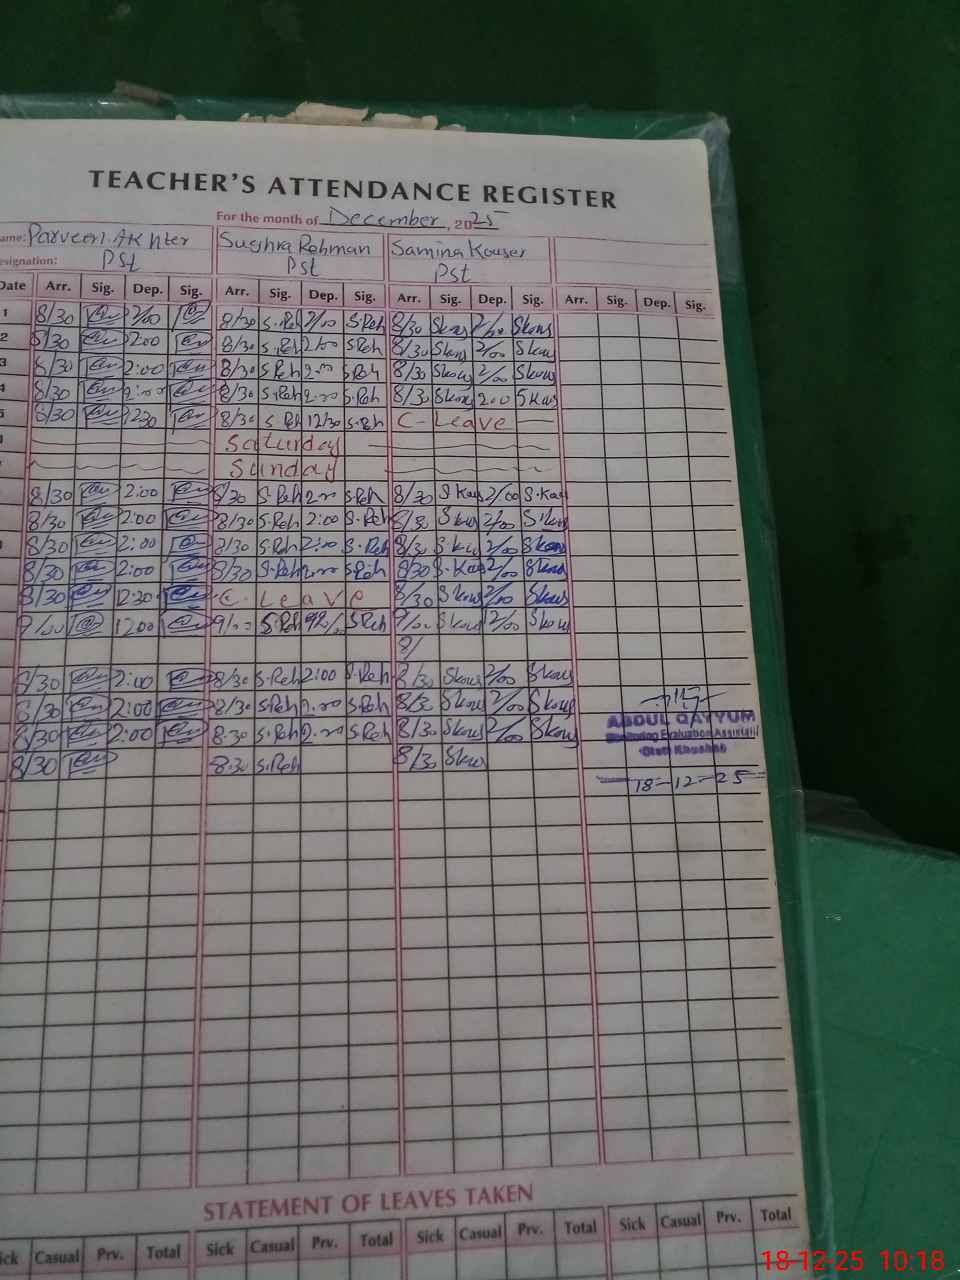 TEACHER'S ATTENDANCE REGISTER
For the month of December, 2025
ame: Parveen Akhter Sughra Rehman Samina Kouser
esignation: Pst Pst Pst
Date Arr. Sig. Dep. Sig. Arr. Sig. Dep. Sig. Arr. Sig. Dep. Sig. Arr. Sig. Dep. Sig.
1 8/30 2/00 8/30 S.Reh 2/00 S.Reh 8/30 Skous 2/00 Skous
2 8/30 2:00 8/30 S.Reh 2/00 S.Reh 8/30 Skous 2/00 Skous
3 8/30 2:00 8/30 S.Reh 2:00 S.Reh 8/30 Skous 2/00 Skous
4 8/30 2:00 8/30 S.Reh 2:00 S.Reh 8/30 Skous 2:00 Skous
5 8/30 12:30 8/30 S.Reh 12/30 S.Reh C-Leave
Saturday
Sunday
8/30 2:00 8/30 S.Reh 2:00 S.Reh 8/30 S.Kous 2/00 S.Kous
8/30 2:00 8/30 S.Reh 2:00 S.Reh 8/30 Skous 2/00 Skous
8/30 2:00 8/30 S.Reh 2:00 S.Reh 8/30 S.kous 2/00 Skous
8/30 2:00 8/30 S.Reh 2:00 S.Reh 8/30 S.Kous 2/00 Skous
8/30 12:30 C-Leave 8/30 Skous 2/00 Skous
9/00 12:00 9/00 S.Reh S.Reh 9/00 Skous 12/00 Skous
8/
8/30 2:00 8/30 S.Reh 2:00 S.Reh 8/30 Skous 2/00 Skous
8/30 2:00 8/30 S.Reh 2:00 S.Reh 8/30 Skous 2/00 Skous
8/30 2:00 8:30 S.Reh 2:00 S.Reh 8/30 Skous 2/00 Skous
8/30 8:30 S.Reh 8/30 Skous
ABDUL QAYYUM
Monitoring Evaluation Assistant
Distt Khushab
18-12-25
STATEMENT OF LEAVES TAKEN
ick Casual Prv. Total Sick Casual Prv. Total Sick Casual Prv. Total Sick Casual Prv. Total
18-12-25 10:18